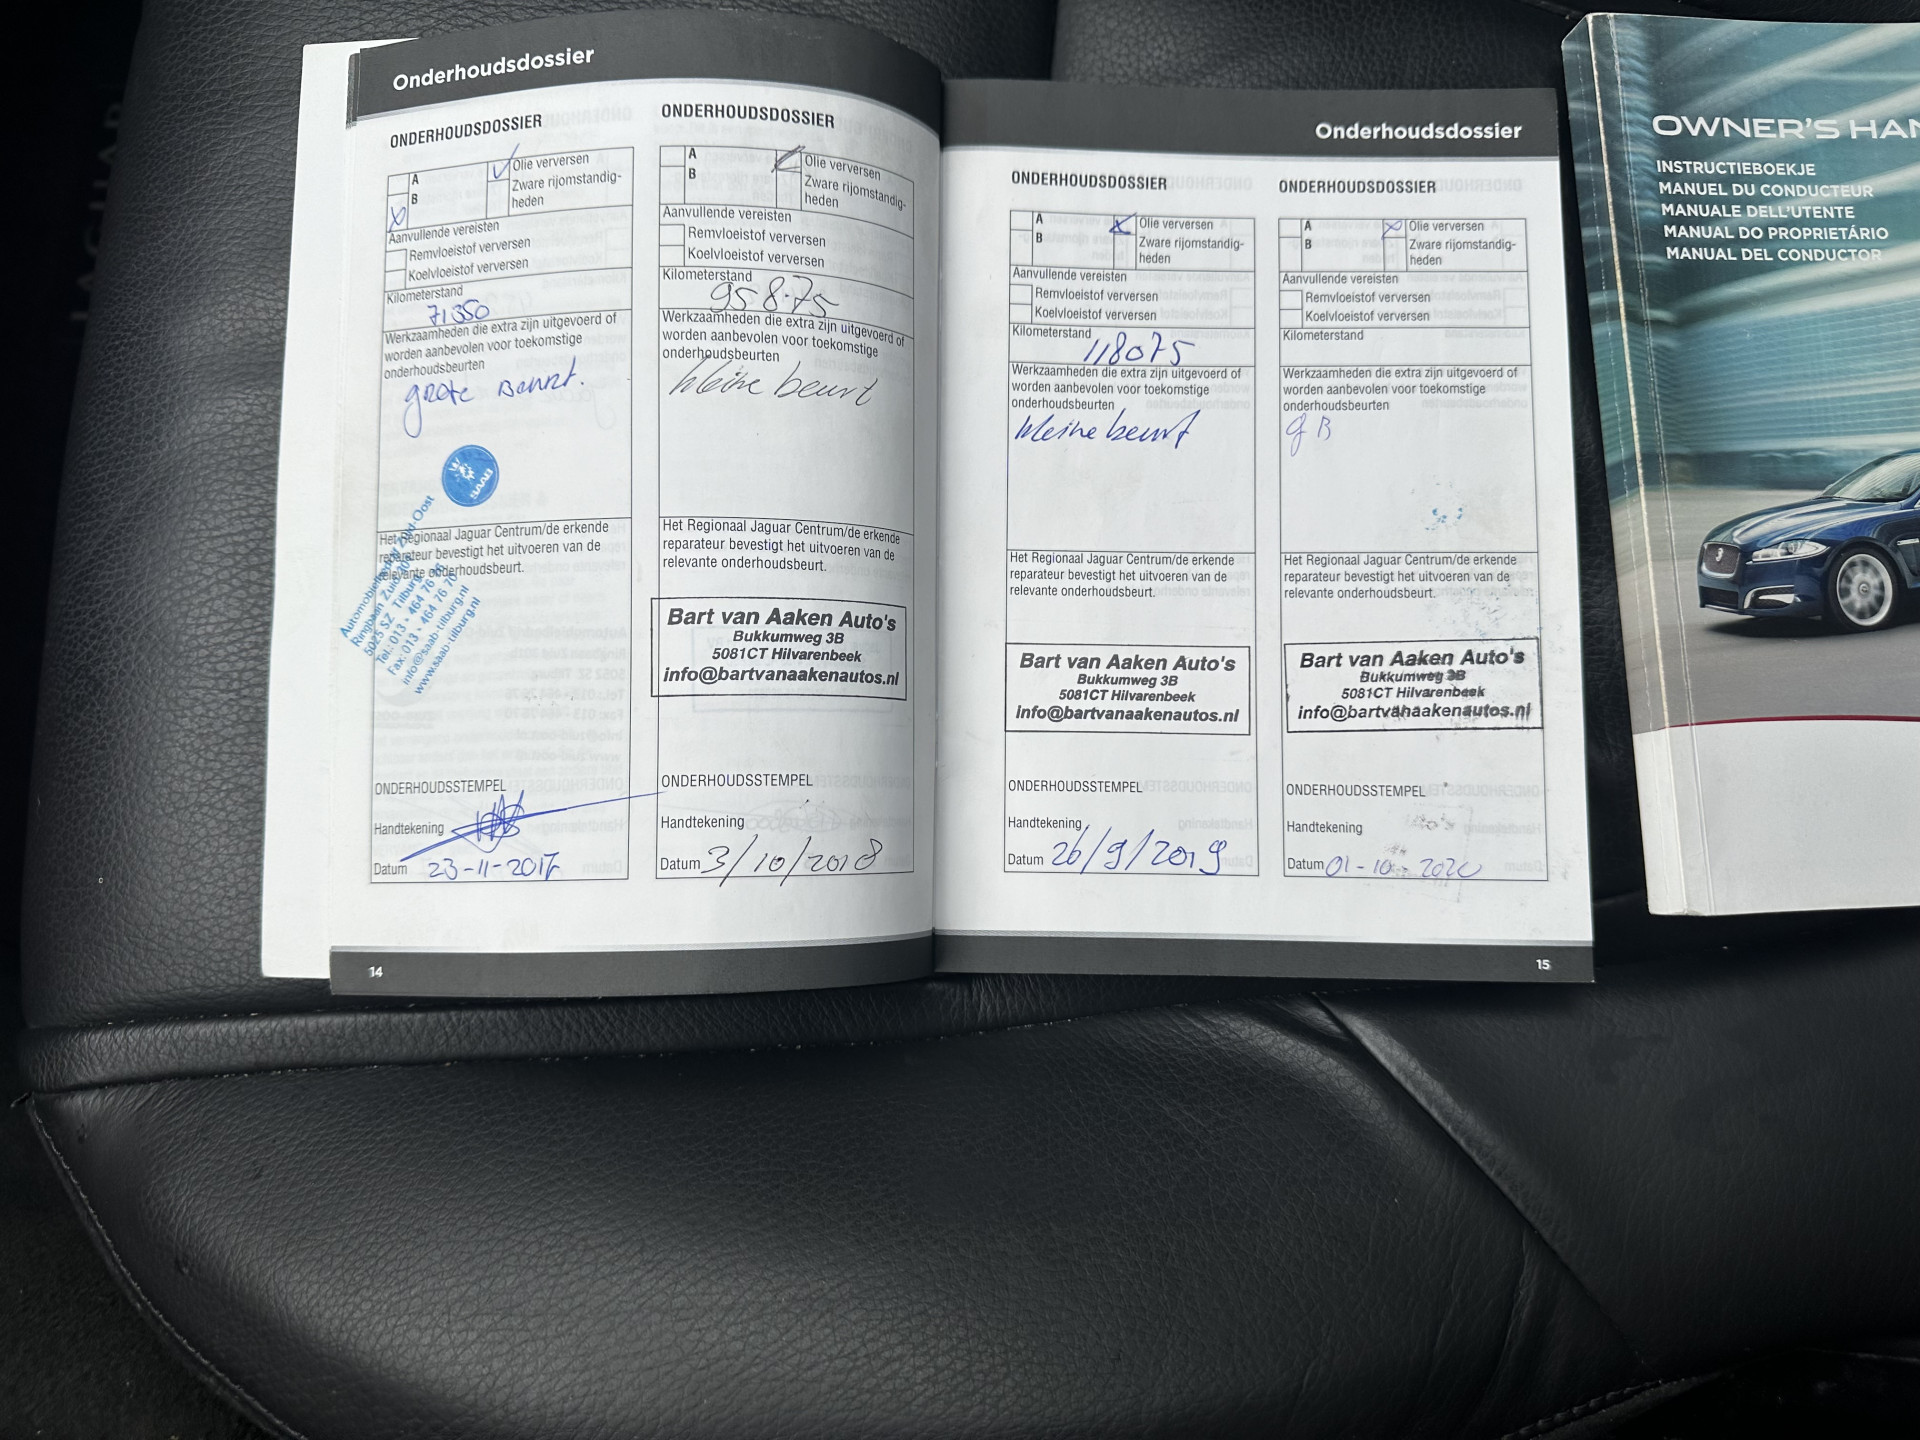 Onderhoudsdossier
ONDERHOUDSDOSSIER
A
B
Olie verversen
Zware rijomstandig-
heden
Aanvullende vereisten
Remvloeistof verversen
Koelvloeistof verversen
Kilometerstand
71350
Werkzaamheden die extra zijn uitgevoerd of
worden aanbevolen voor toekomstige
onderhoudsbeurten
grote Beurt.
SAAB
Het Regionaal Jaguar Centrum/de erkende
reparateur bevestigt het uitvoeren van de
relevante onderhoudsbeurt.
Automobielbedrijf Zuid-Oost
Ringbaan Zuid
5025 SZ Tilburg
Tel.: 013 - 464 76 76
Fax: 013 - 464 76 70
info@saab-tilburg.nl
www.saab-tilburg.nl
ONDERHOUDSSTEMPEL
Handtekening
Datum 23-11-2017
14
ONDERHOUDSDOSSIER
A
B
Olie verversen
Zware rijomstandig-
heden
Aanvullende vereisten
Remvloeistof verversen
Koelvloeistof verversen
Kilometerstand
95875
Werkzaamheden die extra zijn uitgevoerd of
worden aanbevolen voor toekomstige
onderhoudsbeurten
kleine beurt
Het Regionaal Jaguar Centrum/de erkende
reparateur bevestigt het uitvoeren van de
relevante onderhoudsbeurt.
Bart van Aaken Auto's
Bukkumweg 3B
5081CT Hilvarenbeek
info@bartvanaakenautos.nl
ONDERHOUDSSTEMPEL
Handtekening
Datum 3/10/2018
Onderhoudsdossier
ONDERHOUDSDOSSIER
A
B
Olie verversen
Zware rijomstandig-
heden
Aanvullende vereisten
Remvloeistof verversen
Koelvloeistof verversen
Kilometerstand
118075
Werkzaamheden die extra zijn uitgevoerd of
worden aanbevolen voor toekomstige
onderhoudsbeurten
kleine beurt
Het Regionaal Jaguar Centrum/de erkende
reparateur bevestigt het uitvoeren van de
relevante onderhoudsbeurt.
Bart van Aaken Auto's
Bukkumweg 3B
5081CT Hilvarenbeek
info@bartvanaakenautos.nl
ONDERHOUDSSTEMPEL
Handtekening
Datum 26/9/2019
ONDERHOUDSDOSSIER
A
B
Olie verversen
Zware rijomstandig-
heden
Aanvullende vereisten
Remvloeistof verversen
Koelvloeistof verversen
Kilometerstand
Werkzaamheden die extra zijn uitgevoerd of
worden aanbevolen voor toekomstige
onderhoudsbeurten
g B
Het Regionaal Jaguar Centrum/de erkende
reparateur bevestigt het uitvoeren van de
relevante onderhoudsbeurt.
Bart van Aaken Auto's
Bukkumweg 3B
5081CT Hilvarenbeek
info@bartvanaakenautos.nl
ONDERHOUDSSTEMPEL
Handtekening
Datum 01-10-2020
15
OWNER'S HAN
INSTRUCTIEBOEKJE
MANUEL DU CONDUCTEUR
MANUALE DELL'UTENTE
MANUAL DO PROPRIETÁRIO
MANUAL DEL CONDUCTOR